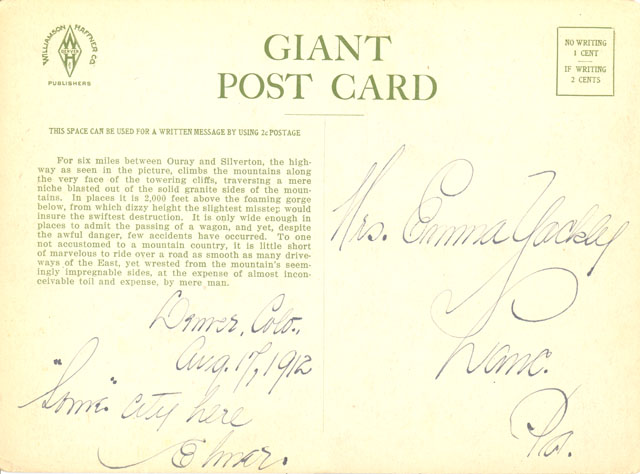 WILLIAMSON HAFFNER CO.
W H
DENVER
PUBLISHERS
GIANT
POST CARD
NO WRITING
1 CENT
IF WRITING
2 CENTS
THIS SPACE CAN BE USED FOR A WRITTEN MESSAGE BY USING 2c POSTAGE
For six miles between Ouray and Silverton, the high-
way as seen in the picture, climbs the mountains along
the very face of the towering cliffs, traversing a mere
niche blasted out of the solid granite sides of the moun-
tains. In places it is 2,000 feet above the foaming gorge
below, from which dizzy height the slightest misstep would
insure the swiftest destruction. It is only wide enough in
places to admit the passing of a wagon, and yet, despite
the awful danger, few accidents have occured. To one
not accustomed to a mountain country, it is little short
of marvelous to ride over a road as smooth as many drive-
ways of the East, yet wrested from the mountain's seem-
ingly impregnable sides, at the expense of almost incon-
ceivable toil and expense, by mere man.
Denver, Colo.,
Aug. 17, 1912
"Some" city here
Elmer.
Mrs. Emma Yackley
Lanc.
Pa.